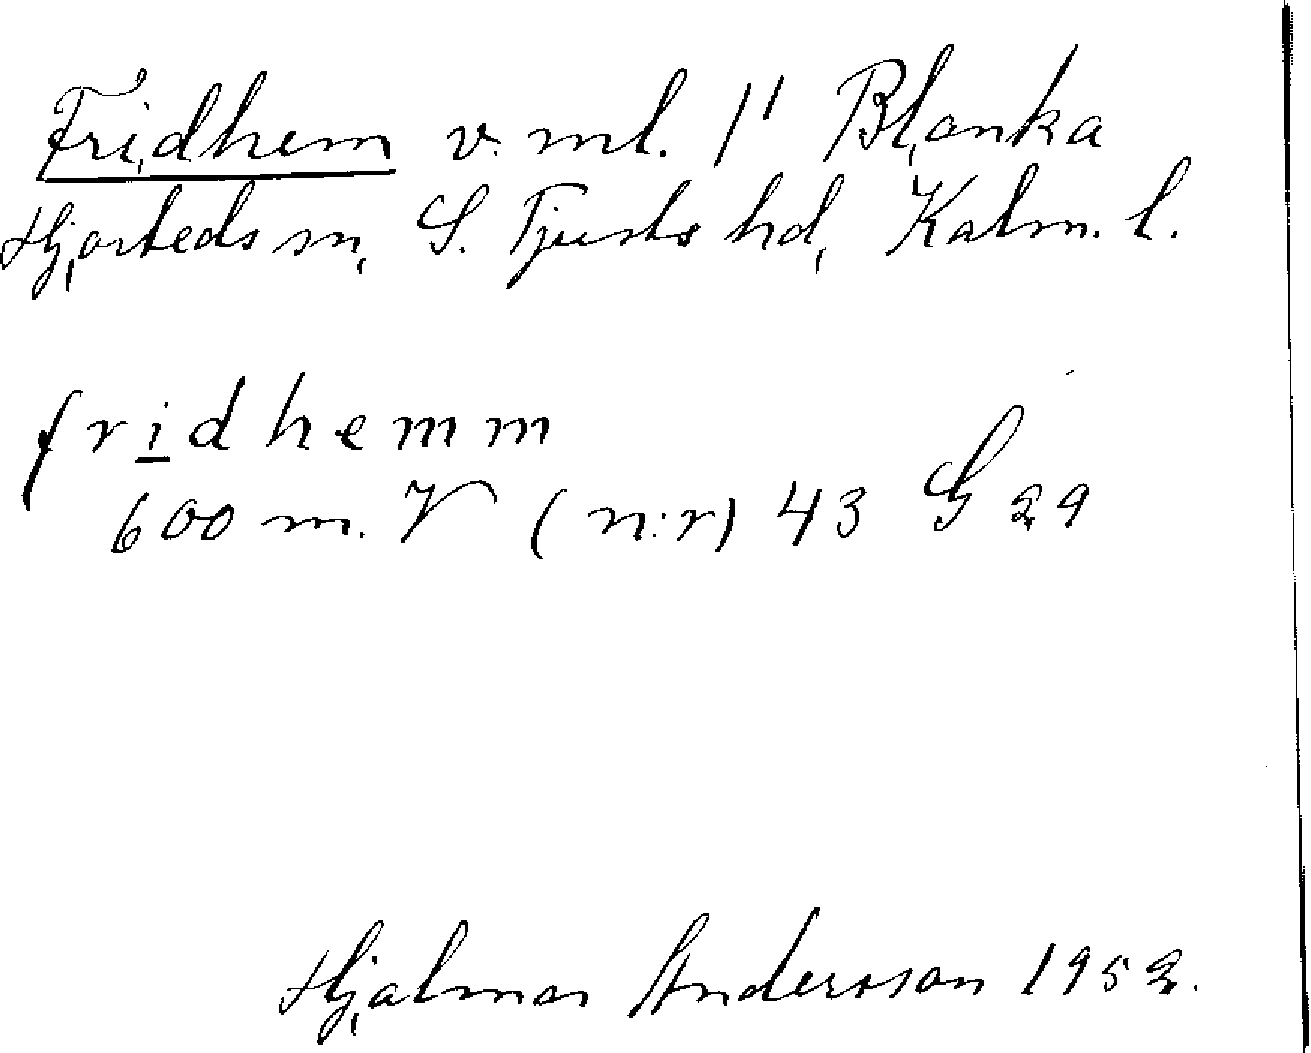 Fridhem v. ml. 1" Blanka
Hjorteds sn, S. Tjusts hd, Kalm. l.
fridhemm
600 m. V (n:r) 43 G 29
Hjalmar Andersson 1952.